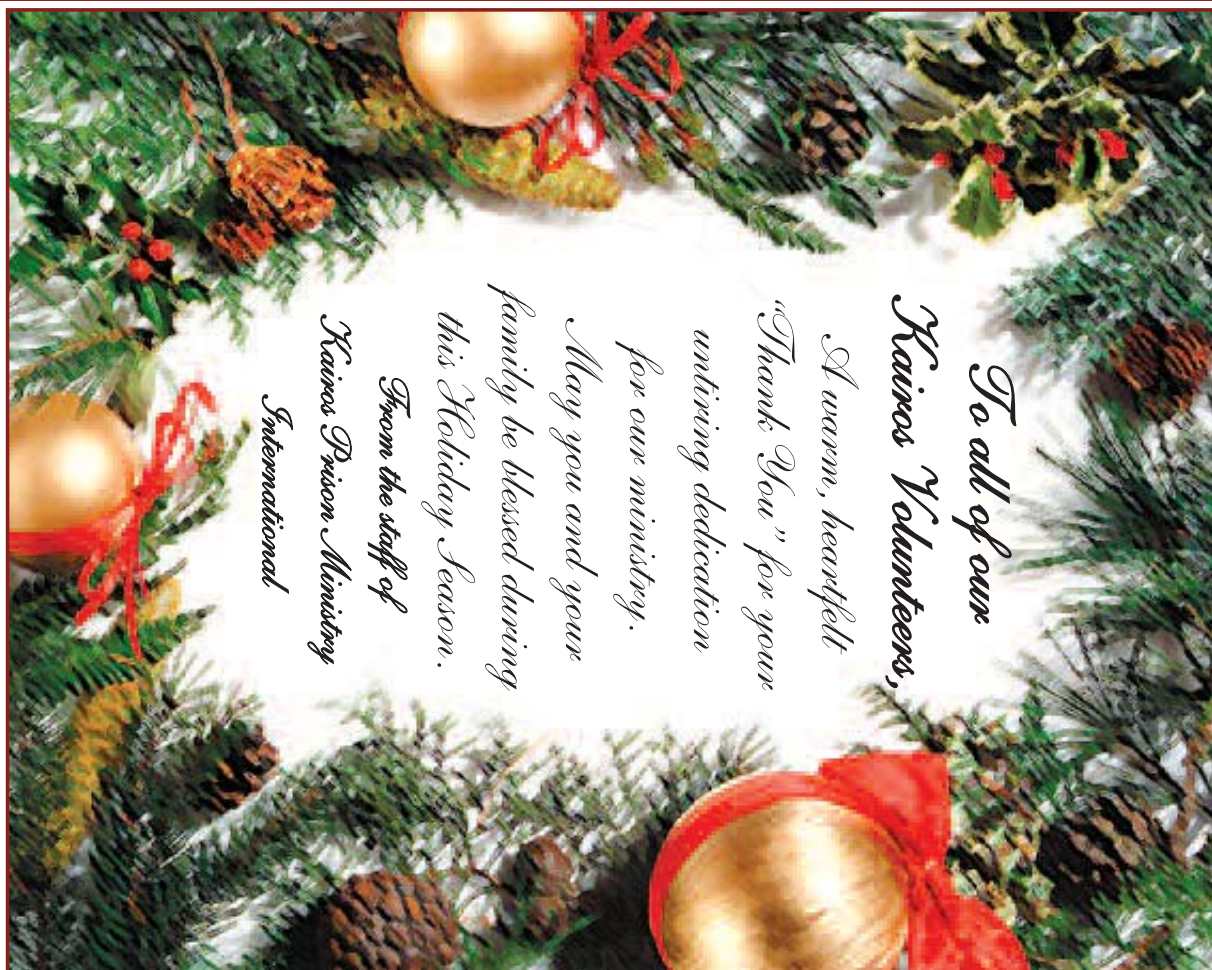 To all of our
Kairos Volunteers,
A warm, heartfelt
“Thank You” for your
untiring dedication
for our ministry.
May you and your
family be blessed during
this Holiday Season.
From the staff of
Kairos Prison Ministry
International